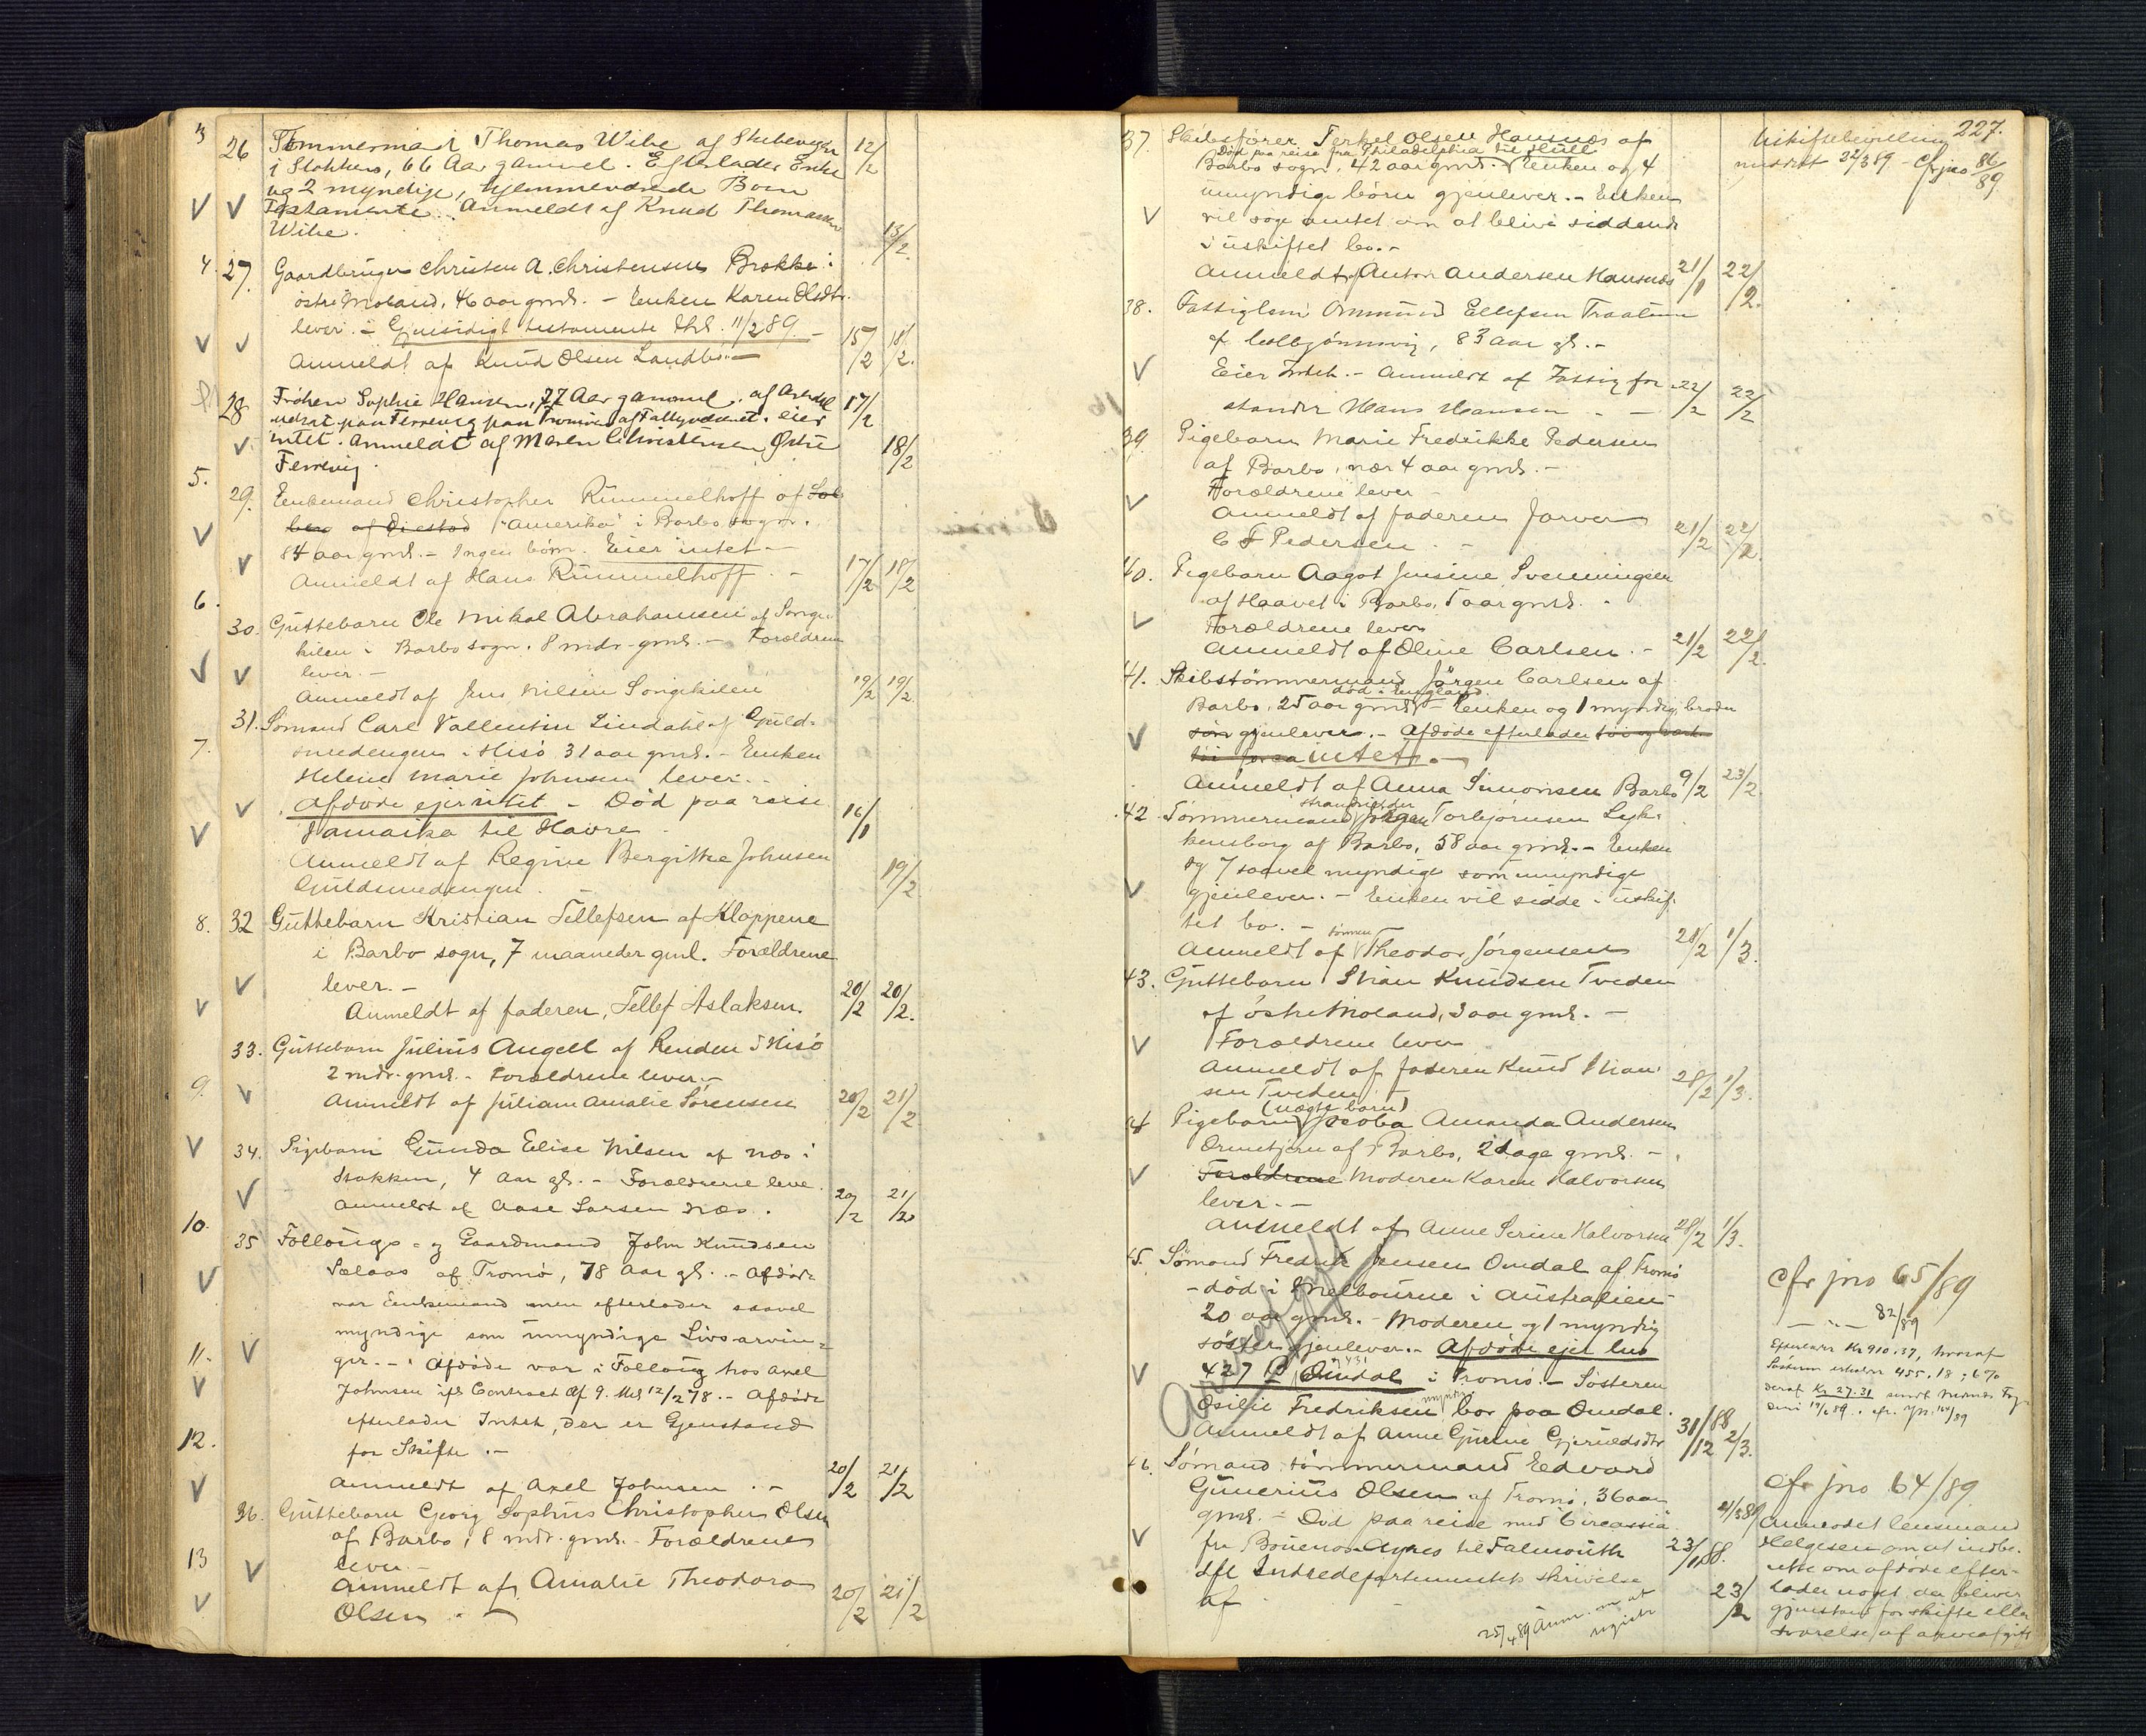 3
26 Tømmermand Thomas Wibe af Stubevigen 12/2
i Stokken, 66 Aar gammel. Efterlader Enke
og 2 myndige, hjemmeværende Børn
Testamente. Anmeldt af Knud Thomassen
Wibe. 13/2
4. 27. Gaardbruger Christen A. Christensen Brække i
østre Moland, 46 aar gml. – Enken Karen Olsdtr.
lever. – Gjensidigt testamente thl. 11/2 89. –
Anmeldt af Knud Olsen Landbø. – 15/2 18/2.
28 Frøken Sophie Hansen, 77 Aar gammel, af Arendal 17/2
udsat paa Færevig paa Tromøen af Fattigvæsenet. eier
intet. Anmeldt af Maren Christensen Østre 18/2
Færevig.
5.
29. Enkemand Christopher Rümmelhoff af Sol
berg af Øiestad "Amerika" i Barbo sogn.
84 aar gml. – Ingen børn. Eier intet –
Anmeldt af Hans Rümmelhoff. – 17/2 18/2
6.
30. Guttebarn Ole Mikal Abrahamsen af Songe
kilen i Barbo sogn. 8 mdr. gml. – Forældrene
lever. –
Anmeldt af Jens Nilsen Songekilen 19/2 19/2
31. Sømand Carl Vallentin Lindahl af Guld-
7. smedengen i Hisø 31 aar gml. – Enken
Helene Marie Johnsen lever. –
Afdøde ejer intet – Død paa reise
Jamaika til Havre 16/1
Anmeldt af Regine Bergitte Johnsen
Guldsmedengen. – 19/2
8. 32 Guttebarn Kristian Tellefsen af Kloppene
i Barbo sogn, 7 maaneder gml. Forældrene
lever. –
Anmeldt af faderen, Tellef Aslaksen. 20/2 20/2.
33. Guttebarn Julius Angell af Renden i Hisø
2 mdr. gml. – Forældrene lever. –
9. Anmeldt af Juliane Amalie Sørensen 20/2 21/2
34. Pigebarn Gunda Elise Nilsen af Næs i
Stokken, 4 Aar gl. – Forældrene leve.
Anmeldt af Aase Larsen Næs. 20/2 21/2
10.
35 Føllougs- og Gaardmand John Knudsen
Sælaas af Tromø, 78 Aar gl. – Afdøde
var Enkemand men efterlader saavel
myndige som umyndige Livsarvin-
11. ger. – Afdøde var i Følloug hos Axel
Johnsen ifl. Contract af 9. thl 12/2 78. – Afdøde
efterlader Intet, der er Gjenstand
12. for Skifte. –
Anmeldt af Axel Johnsen. – 20/2 21/2
36. Guttebarn Georg Sophus Christopher Olsen
af Barbo, 8 mdr. gml. Forældrene
13 lever. –
Anmeldt af Amalie Theodora
Olsen. – 20/2 21/2
227.
37. Skibsfører Terkel Olsen Hausnæs af
Død paa reise fra Philadelphia til Hull
Barbo sogn, 42 aar gml. – Enken og 4
umyndige børn gjenlever. – Enken
vil søge amtet om at blive siddende
i uskiftet bo. –
Anmeldt af Anton Andersen Hausnæs 21/1 22/2.
Uskiftebevilling
meddelt 22/3 89 – Cfr jno 86/89
38. Fattiglem Ommund Ellefsen Traatunn
af Kolbjørnsvig, 83 Aar gl. –
Eier Intet. – Anmeldt af Fattigfor- 22/2 22/2
stander Hans Hansen. –
39. Pigebarn Marie Fredrikke Pedersen
af Barbo, nær 4 aar gml. –
Forældrene lever –
Anmeldt af faderen Garver
C F Pedersen. – 21/2 22/2.
40. Pigebarn Aagot Jensine Svenningsen
af Haavet i Barbo, 5 aar gml. –
Forældrene lever
Anmeldt af Oline Carlsen. – 21/2 22/2.
41. Skibstømmermand Jørgen Carlsen af
død i England.
Barbo, 25 aar gml. – Enken og 1 myndig broder
søn gjenlever. – Afdøde efterlader
intet. –
Anmeldt af Anna Simonsen Barbo 9/2 23/2.
42. Tømmermand Jørgen Torbjørnsen Lyk-
kensborg af Barbo, 58 aar gml. – Enken
og 7 saavel myndige som umyndige
gjenlever. – Enken vil sidde i uskif-
tet bo. – sønnen
Anmeldt af Theodor Jørgensen 28/2 1/3.
43. Guttebarn Stian Knudsen Tveden
af østre Moland, 3 aar gml. –
Forældrene lever
Anmeldt af faderen Knud Stian-
sen Tveden. 28/2 1/3.
(uægte barn)
44 Pigebarn Jacoba Amanda Andersen
Ormetjern af Barbo, 2 dage gml. –
Forældrene Moderen Karen Halvorsen
lever. –
Anmeldt af Anne Serine Halvorsen 28/2 1/3.
45. Sømand Fredrik Jensen Omdal af Tromø
– død i Melbourne i Australien –
20 aar gml. – Moderen og 1 myndig
søster gjenlever. – Afdøde ejer lno
427 Omdal i Tromø. – Søsteren
Osilie Fredriksen myndig bor paa Omdal.
Anmeldt af Anne Gurine Gjeruldsdtr 31/12 88 2/3.
Cfr jno 65/89
— " — 82/89
Efterlader Kr 910.37, hvoraf
Søsteren erholder 455.18; 6%
deraf Kr 27.31 sendt
46. Sømand tømmermand Edvard
Gunerius Olsen af Tromø, 36 aar
gml. – Død paa reise med Circassia
fra Buenos-Ayres til Falmouth 23/1 88.
ifl Indredepartementets skrivelse
af 23/2
25/4 89 Anm. om at
Cfr jno 64/89
4/3 89 Anmodet lensmand
Helgesen om at indbe-
rette om afdøde efter-
lader noget der bliver
gjenstand for skifte eller
svarelse af arveafgift